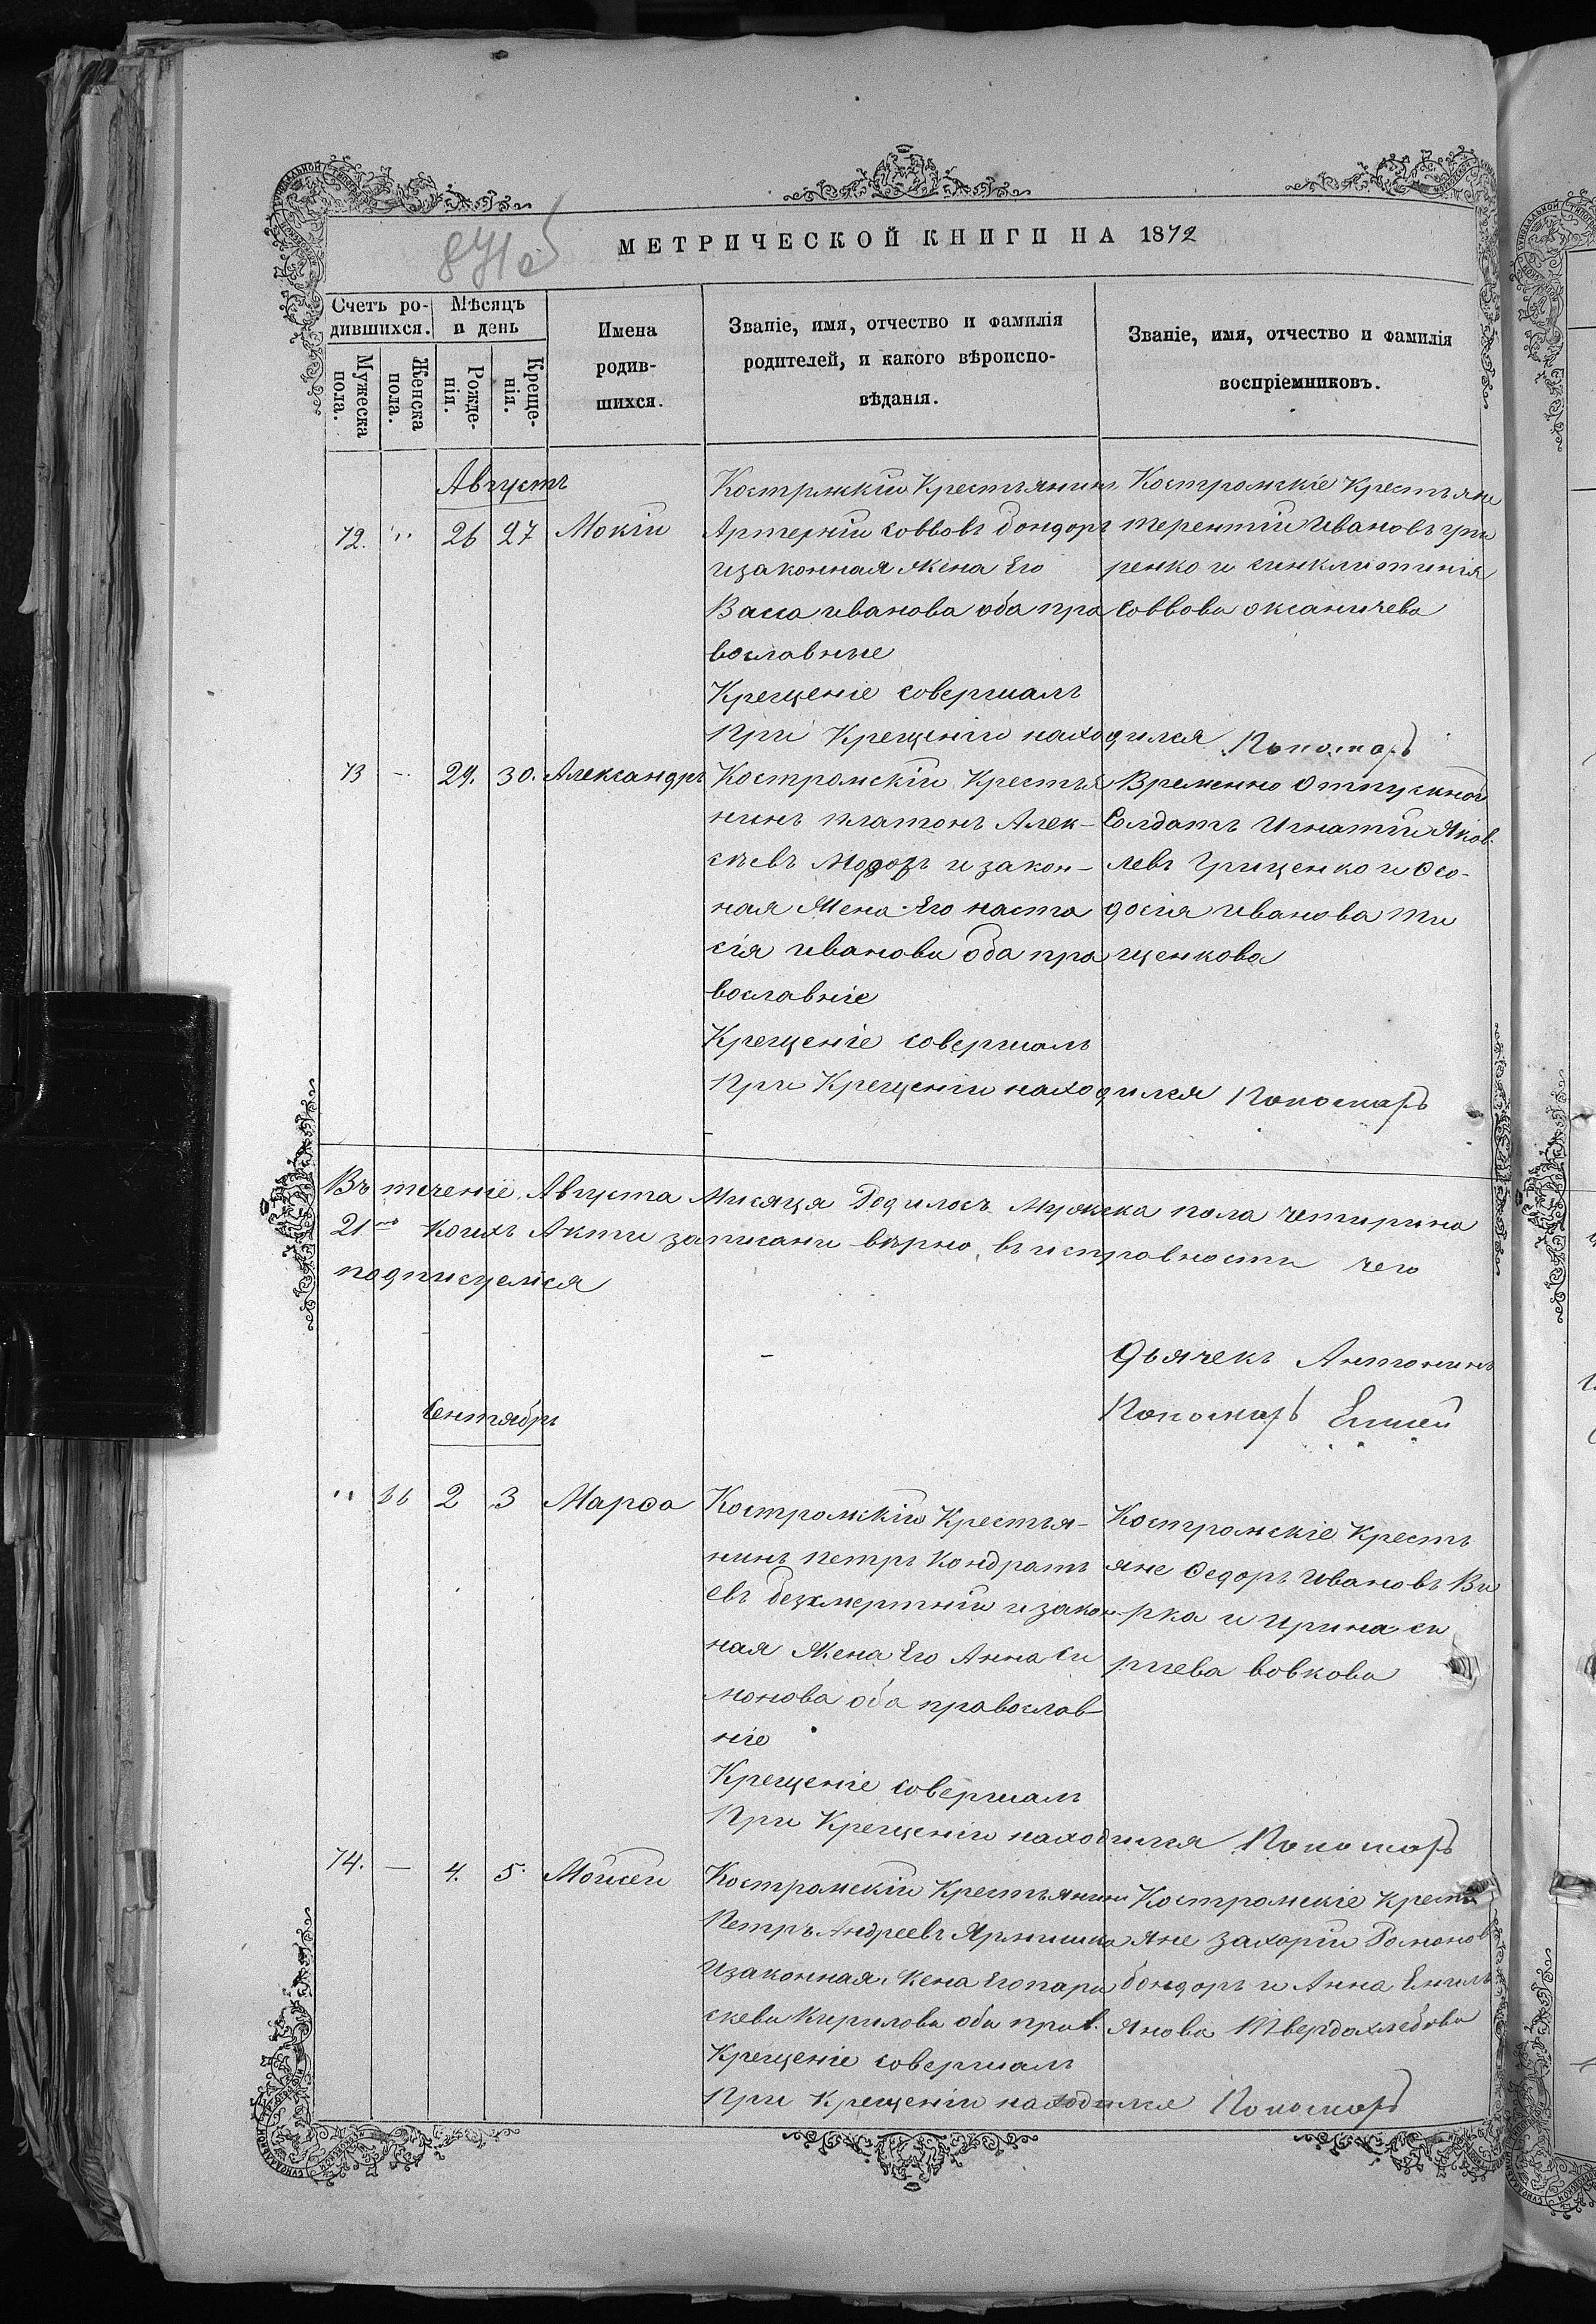 МЕТРИЧЕСКОЙ КНИГИ НА 1872
Счетъ ро-
дившихся.
Мужеска
пола.
Женска
пола.
Мѣсяцъ
и день
Рожде-
нія.
Креще-
нія.
Имена
родив-
шихся.
Званіе, имя, отчество и фамилія
родителей, и какого вѣроиспо-
вѣданія.
Званіе, имя, отчество и фамилія
воспріемниковъ.
Августъ
72. " 26 27 Мокіи
Костромкіи Крестьянинъ
Артемiи Сововъ бондоръ
изаконная Жена Его
Васса иванова оба пра
вославные
Крещеніе совершалъ
При Крещеніи находился Пономарь
Костромскіе Крестьяне
терентіи Ивановъ гри
ренко и синклитинія
Соввова оксаничева
73 - 29. 30. Александръ
Костромскіи Крестья
нинъ платонъ Алек-
сѣевъ Морозъ и закон-
ная Жена Его наста
сія иванова оба пра
вославніе
Крещеніе совершалъ
При Крещеніи находился Пономарь
Временно Отпускной
Солдатъ Игнатіи Яков-
левъ Грищенко и Ѳео-
досія иванова ти
щенкова
Въ теченіе Августа Мисяця Родилось Мужска пола четирина
21 коихъ Акти записани вѣрно, въ исправности чего
подписуемся
Дьячекъ Антонинъ
Пономарь Елисей
Сентябрь
" 36 2 3 Марѳа
Костромскіи Крестья-
нинъ петръ Кондрать
евъ безсмертніи изакон-
ная Жена Его Анна Си
монова оба православ
ніе
Крещеніе совершалъ
При Крещеніи находился Пономарь
Костромскіе Кресть
яне Ѳедоръ Ивановъ Ви
рка и Ирина си
ргіева вовкова
74. — 4. 5. Моисеи
Костромскіи Крестьянинъ
Петръ Андреевъ Ярмишко
Изаконная Жена Его пара
скева Кирилова оба прав.
Крещеніе совершалъ
При Крещеніи находился Пономарь
Костромскіе Кресть
яне Захаріи Романов
бондоръ и Анна Емиль
янова Твердохлебова